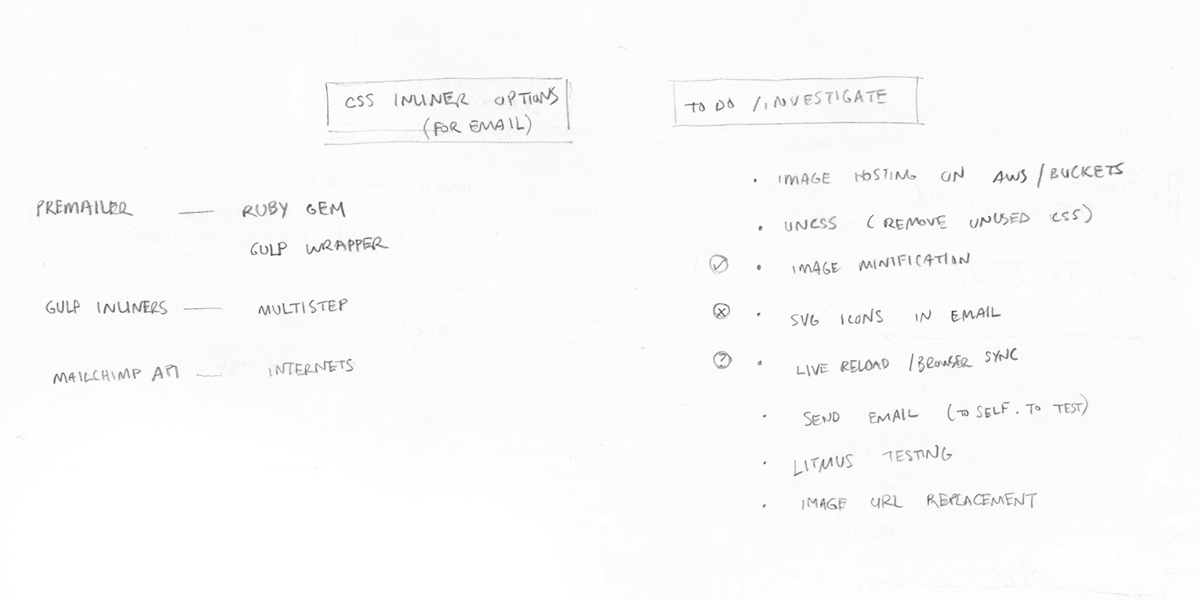 CSS INLINER OPTIONS
(FOR EMAIL)
PREMAILER — RUBY GEM
GULP WRAPPER
GULP INLINERS — MULTISTEP
MAILCHIMP API — INTERNETS
TO DO / INVESTIGATE
• IMAGE HOSTING ON AWS / BUCKETS
• UNCSS (REMOVE UNUSED CSS)
✓ • IMAGE MINIFICATION
x • SVG ICONS IN EMAIL
? • LIVE RELOAD / BROWSER SYNC
• SEND EMAIL (TO SELF. TO TEST)
• LITMUS TESTING
• IMAGE URL REPLACEMENT